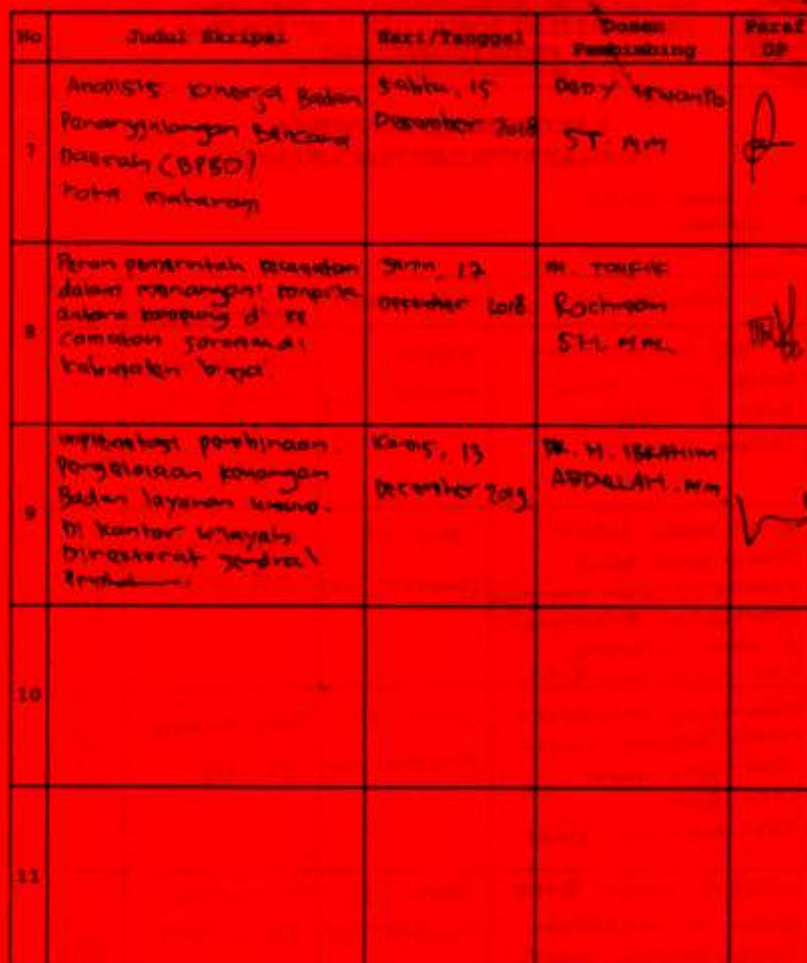 No Judul Skripsi Hari/Tanggal Dosen Pembimbing Paraf DP
7
Analisis kinerja Badan
Penanggulangan Bencana
Daerah (BPBD)
kota mataram
Sabtu, 15
Desember 2018
DEDY
ST. MM
8
Peran pemerintah kecamatan
dalam menangani konflik
antara kampung di ke
camatan soromandi
kabupaten bima.
Senin, 17
Desember 2018
M. TAUFIK
Rochman
SH. MM.
9
pembinaan
Pengelolaan keuangan
Badan layanan umum.
Di kantor wilayah
Direktorat jendral
Kamis, 13
Desember
DR. H. IBRAHIM
ABDULLAH. MM
10
11